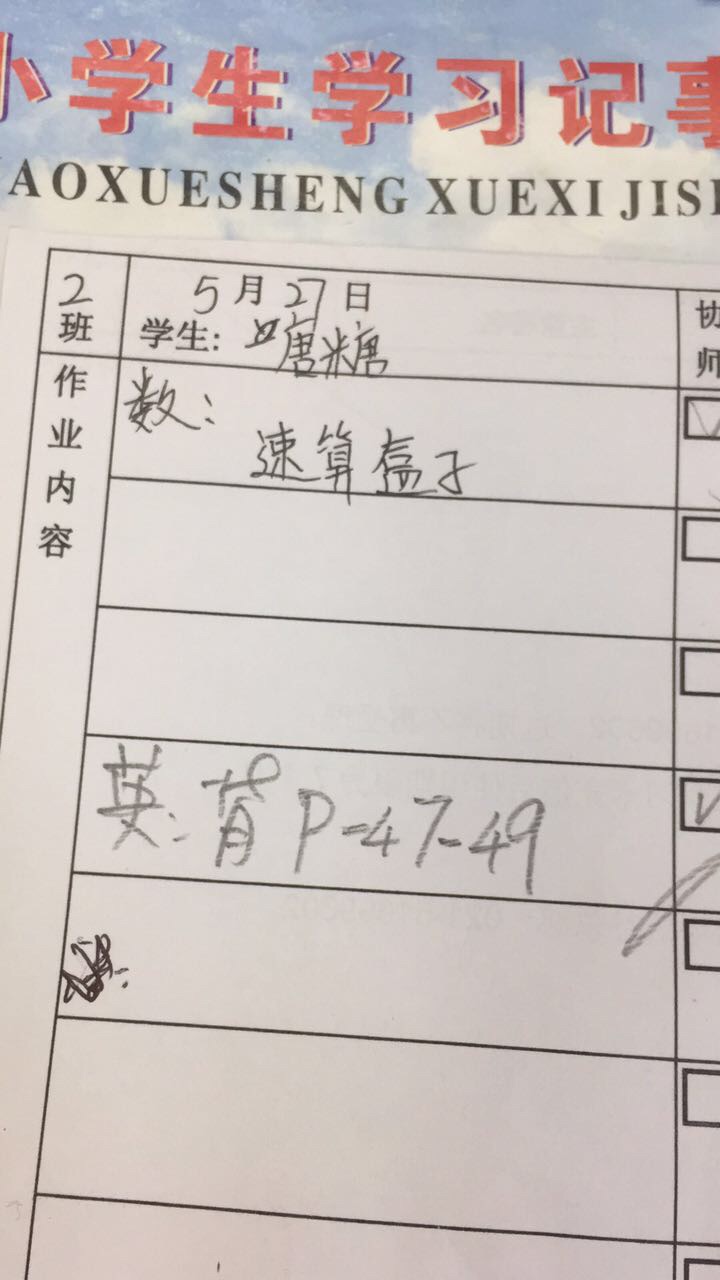 小学生学习记事
AOXUESHENG XUEXI JISH
2班
5月27日
学生: 唐糖
协
师
作业内容
数:
速算盒子
英: 背P-47-49